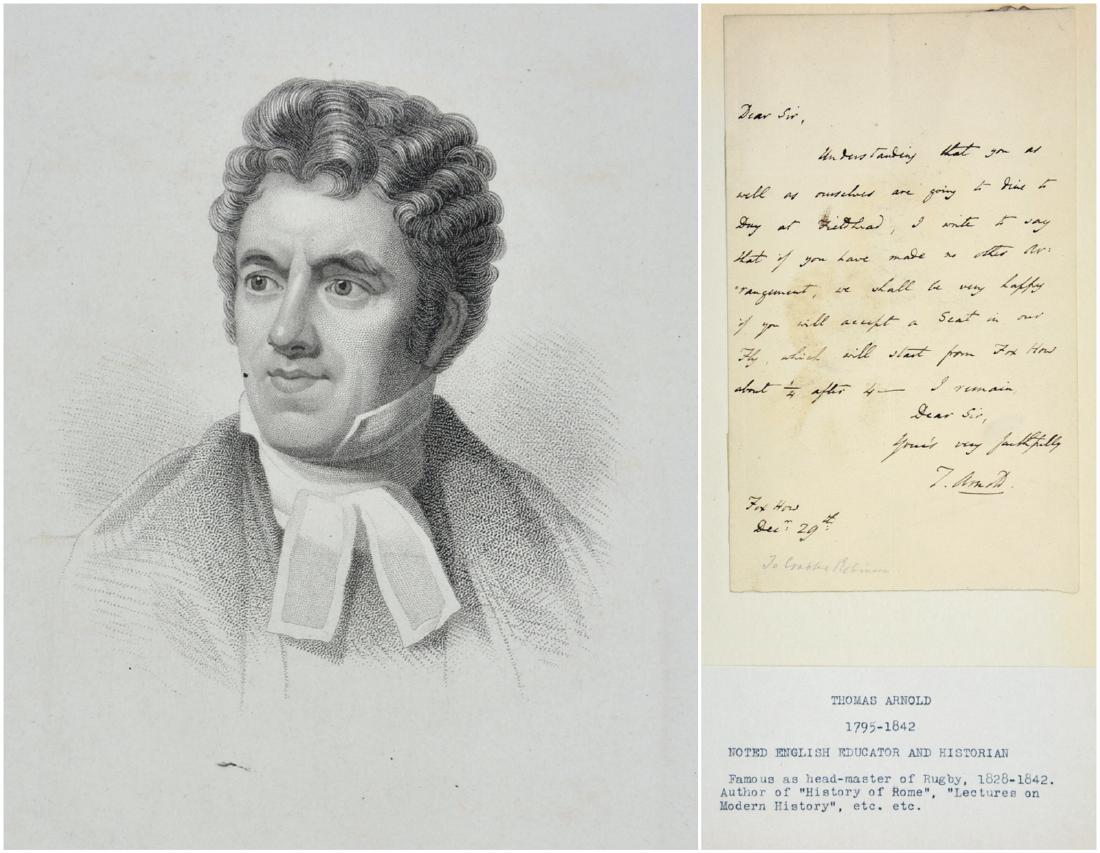 Dear Sir,
Understanding that you as
well as ourselves are going to dine to
Day at Fieldhead, I write to say
that if you have made no other Ar:
"rangement, we shall be very happy
if you will accept a Seat in our
Fly, which will start from Fox How
about 1/4 after 4 — I remain
Dear Sir,
Your's very faithfully
T. Arnold.
Fox How
Decr. 29th.
To Crabbe Robinson
THOMAS ARNOLD
1795-1842
NOTED ENGLISH EDUCATOR AND HISTORIAN
Famous as head-master of Rugby, 1828-1842.
Author of "History of Rome", "Lectures on
Modern History", etc. etc.